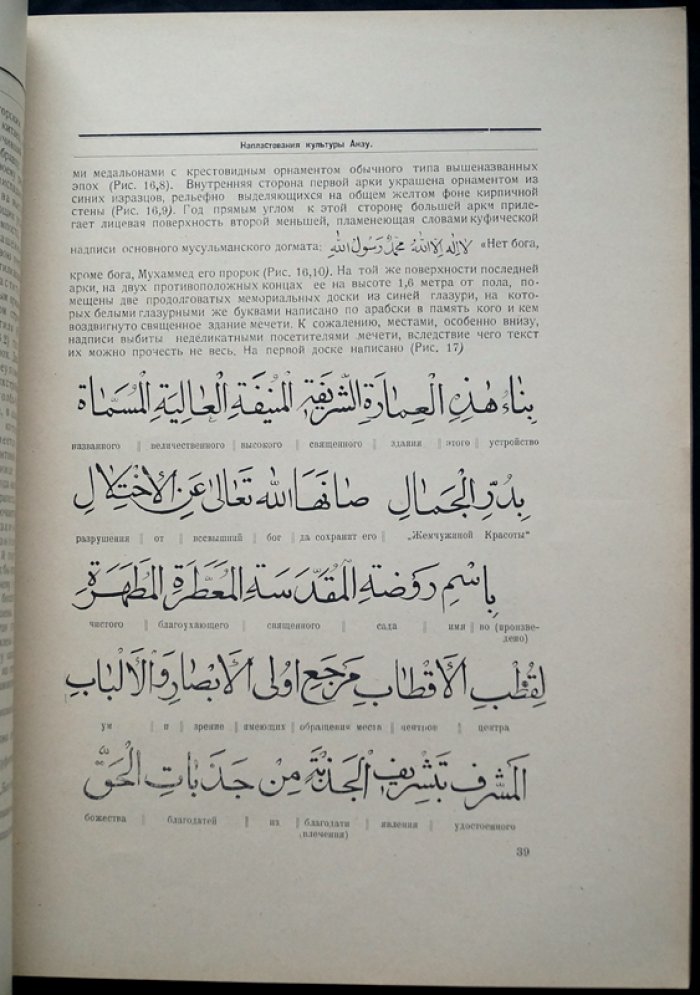 Напластования культуры Анау.
ми медальонами с крестовидным орнаментом обычного типа вышеназванных
эпох (Рис. 16,8). Внутренняя сторона первой арки украшена орнаментом из
синих изразцов, рельефно выделяющихся на общем желтом фоне кирпичной
стены (Рис. 16,9). Год прямым углом к этой стороне большей арки приле-
гает лицевая поверхность второй меньшей, пламенеющая словами куфической
надписи основного мусульманского догмата: لا اله الا الله محمد رسول الله «Нет бога,
кроме бога, Мухаммед его пророк (Рис. 16,10). На той же поверхности последней
арки, на двух противоположных концах ее на высоте 1,6 метра от пола, по-
мещены две продолговатых мемориальных доски из синей глазури, на кото-
рых белыми глазурными же буквами написано по арабски в память кого и кем
воздвигнуто священное здание мечети. К сожалению, местами, особенно внизу,
надписи выбиты неделикатными посетителями мечети, вследствие чего текст
их можно прочесть не весь. На первой доске написано (Рис. 17)
بِنَاءُ هٰذِهِ الْعِمَارَةِ الشَّرِيفَةِ الْمُنِيفَةِ الْعَالِيَةِ الْمُسَمَّاةِ
названного || величественного || высокого || священного || здания || этого || устройство
بِدُرِّ الْجَمَالِ صَانَهَا اللّٰهُ تَعَالىٰ عَنِ الْاِخْتِلَالِ
разрушения || от || всевышний || бог || да сохранит его || „Жемчужиной Красоты"
بِاسْمِ رَوْضَتِهِ الْمُقَدَّسَةِ الْمُعَطَّرَةِ الْمُطَهَّرَةِ
чистого || благоухающего || священного || сада || имя || во (произве-
дено)
لِقُطْبِ الْاَقْطَابِ مَرْجَعِ اُولِى الْاَبْصَارِ وَالْاَلْبَابِ
ум || и || зрение || имеющих || обращения места || центров || центра
الْمُشَرَّفِ بِتَشْرِيفِ الْجَذْبَةِ مِنْ جَذَبَاتِ الْحَقِّ
божества || благодатей || их || благодати || явления || удостоенного
(влечения)
39